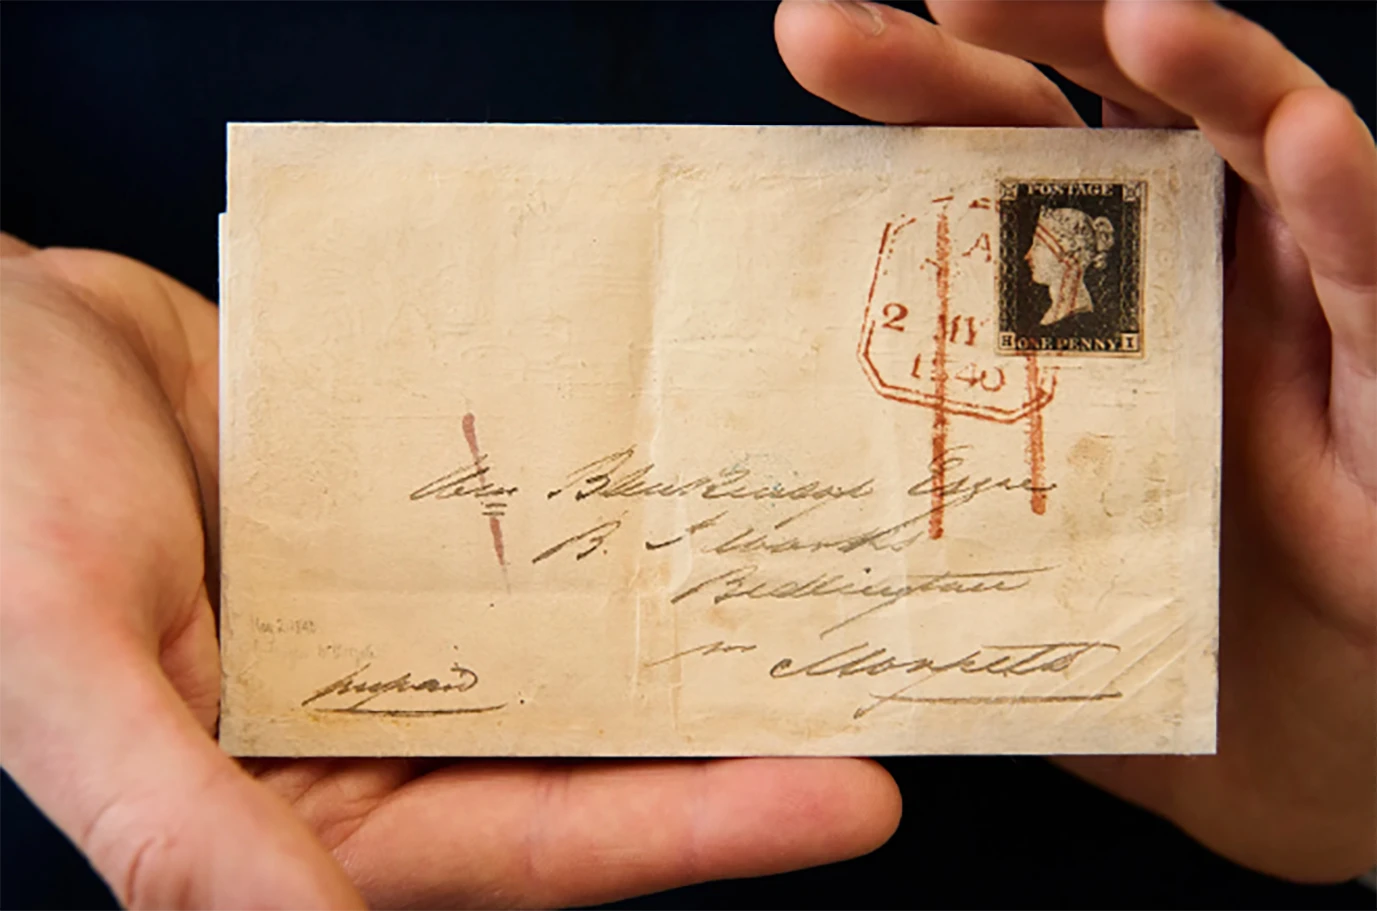 POSTAGE
A
2 MY
1840
H ONE PENNY I
Wm Blenkinsop Esqre
B. I Works
Bedlington
nr Morpeth
May 2. 1840
prepaid